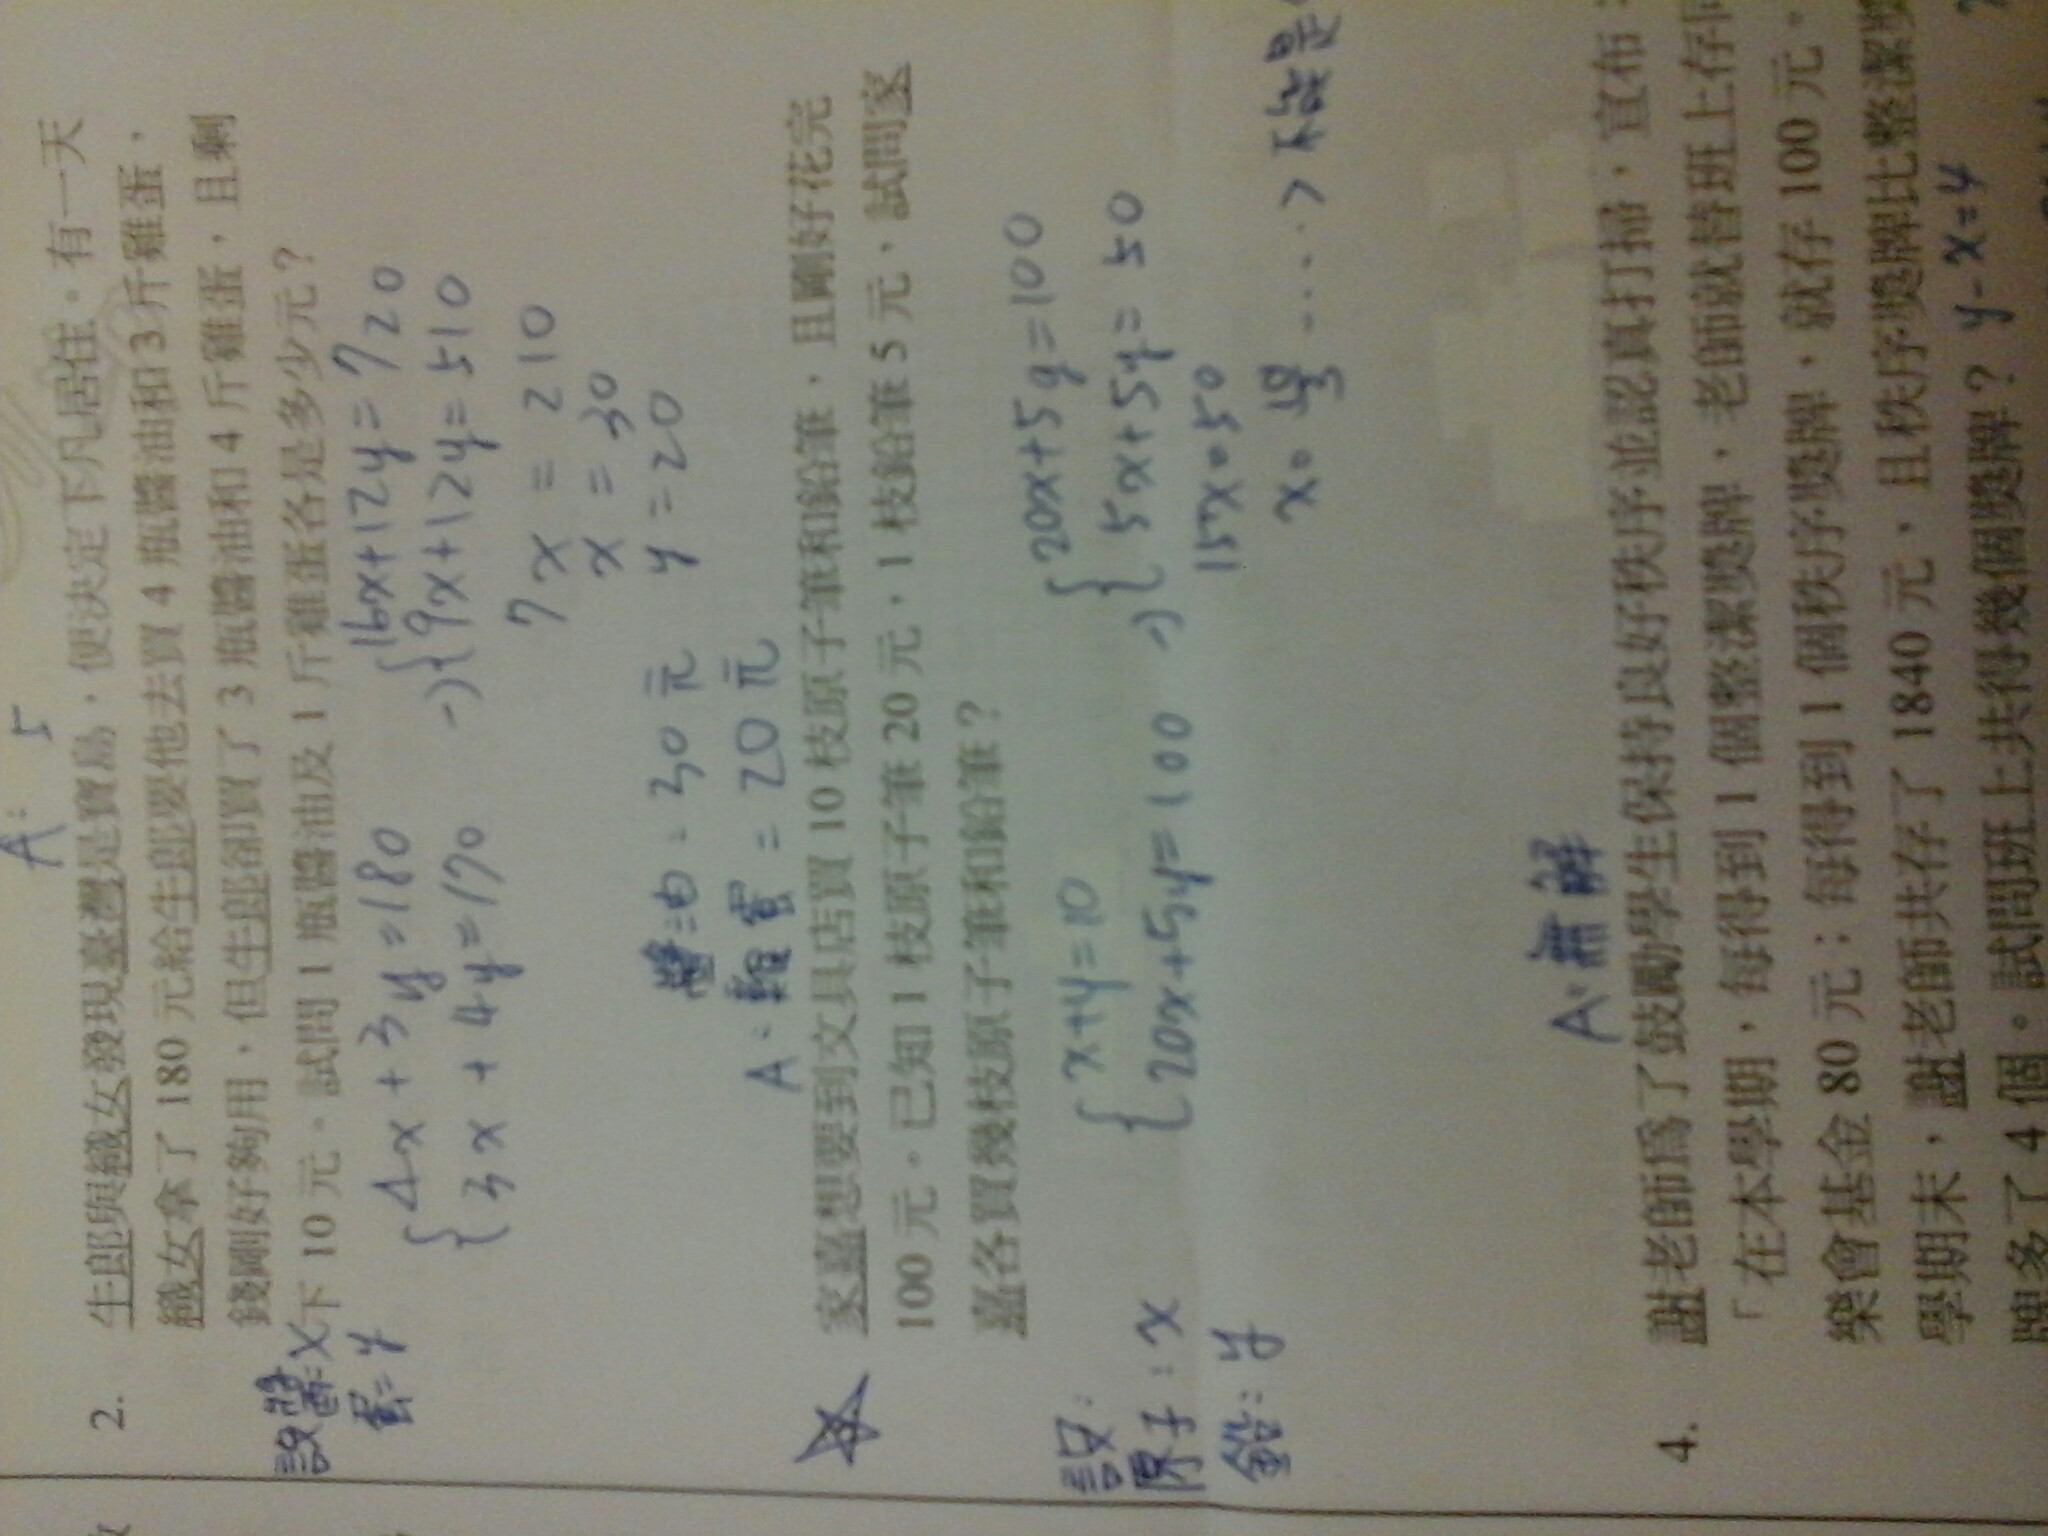 A: 5
2. 牛郎與織女發現臺灣是寶島，便決定下凡居住。有一天
織女拿了 180 元給牛郎要他去買 4 瓶醬油和 3 斤雞蛋，
錢剛好夠用，但牛郎卻買了 3 瓶醬油和 4 斤雞蛋，且剩
下 10 元。試問 1 瓶醬油及 1 斤雞蛋各是多少元？
設醬=x
蛋=y
4x+3y=180
3x+4y=170
16x+12y=720
-) 9x+12y=510
7x=210
x=30
y=20
醬油=30元
A:雞蛋=20元
家嘉想要到文具店買 10 枝原子筆和鉛筆，且剛好花完
100 元。已知 1 枝原子筆 20 元，1 枝鉛筆 5 元，試問家
嘉各買幾枝原子筆和鉛筆？
設:
原子:x
鉛:y
x+y=10
20x+5y=100
20x+5y=100
-) 5x+5y=50
15x=50
x= ....>不能是
A:無解
4. 謝老師為了鼓勵學生保持良好秩序並認真打掃，宣布：
「在本學期，每得到 1 個整潔獎牌，老師就替班上存同
樂會基金 80 元；每得到 1 個秩序獎牌，就存 100 元。
學期末，謝老師共存了 1840 元，且秩序獎牌比整潔獎
牌多了 4 個。試問班上共得幾個獎牌？ y-x=4